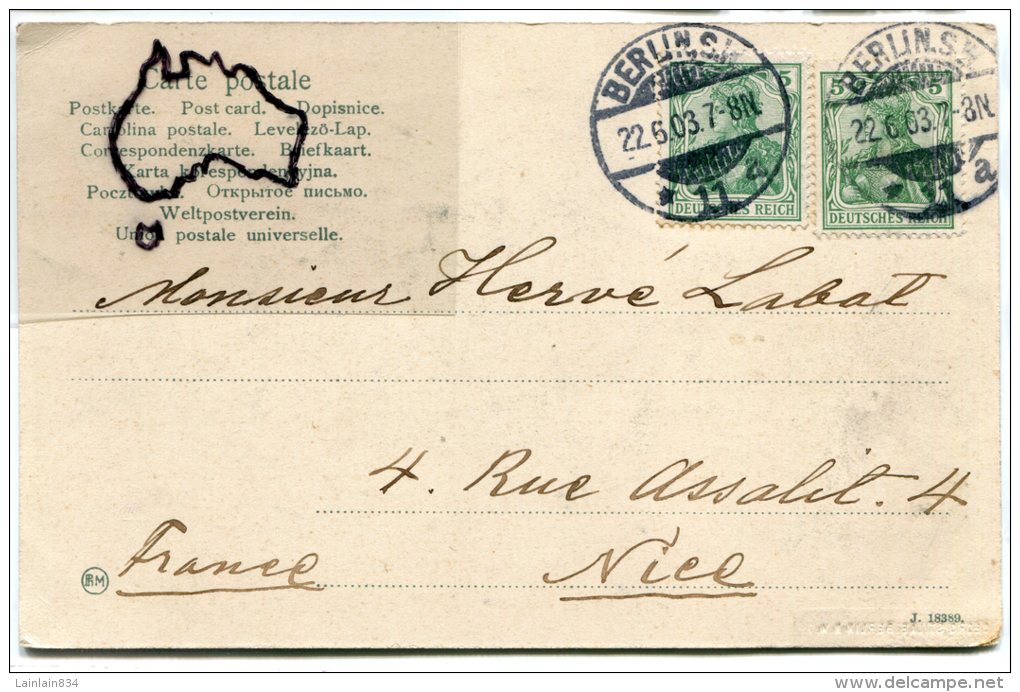 Carte postale
Postkarte. Post card. Dopisnice.
Cartolina postale. Levelező-Lap.
Correspondenzkarte. Briefkaart.
Karta korespondencyjna.
Pocztówka. Открытое письмо.
Weltpostverein.
Union postale universelle.
BERLIN.S.W.
22.6.03.7-8N.
* 11 a
5
DEUTSCHES REICH
BERLIN.S.W.
22.6.03.7-8N.
* 11 a
5 5
DEUTSCHES REICH
Monsieur Hervé Labat
4. Rue Assalit. 4
France Nice
RM
J. 18389.
Lainlain834
www.delcampe.net